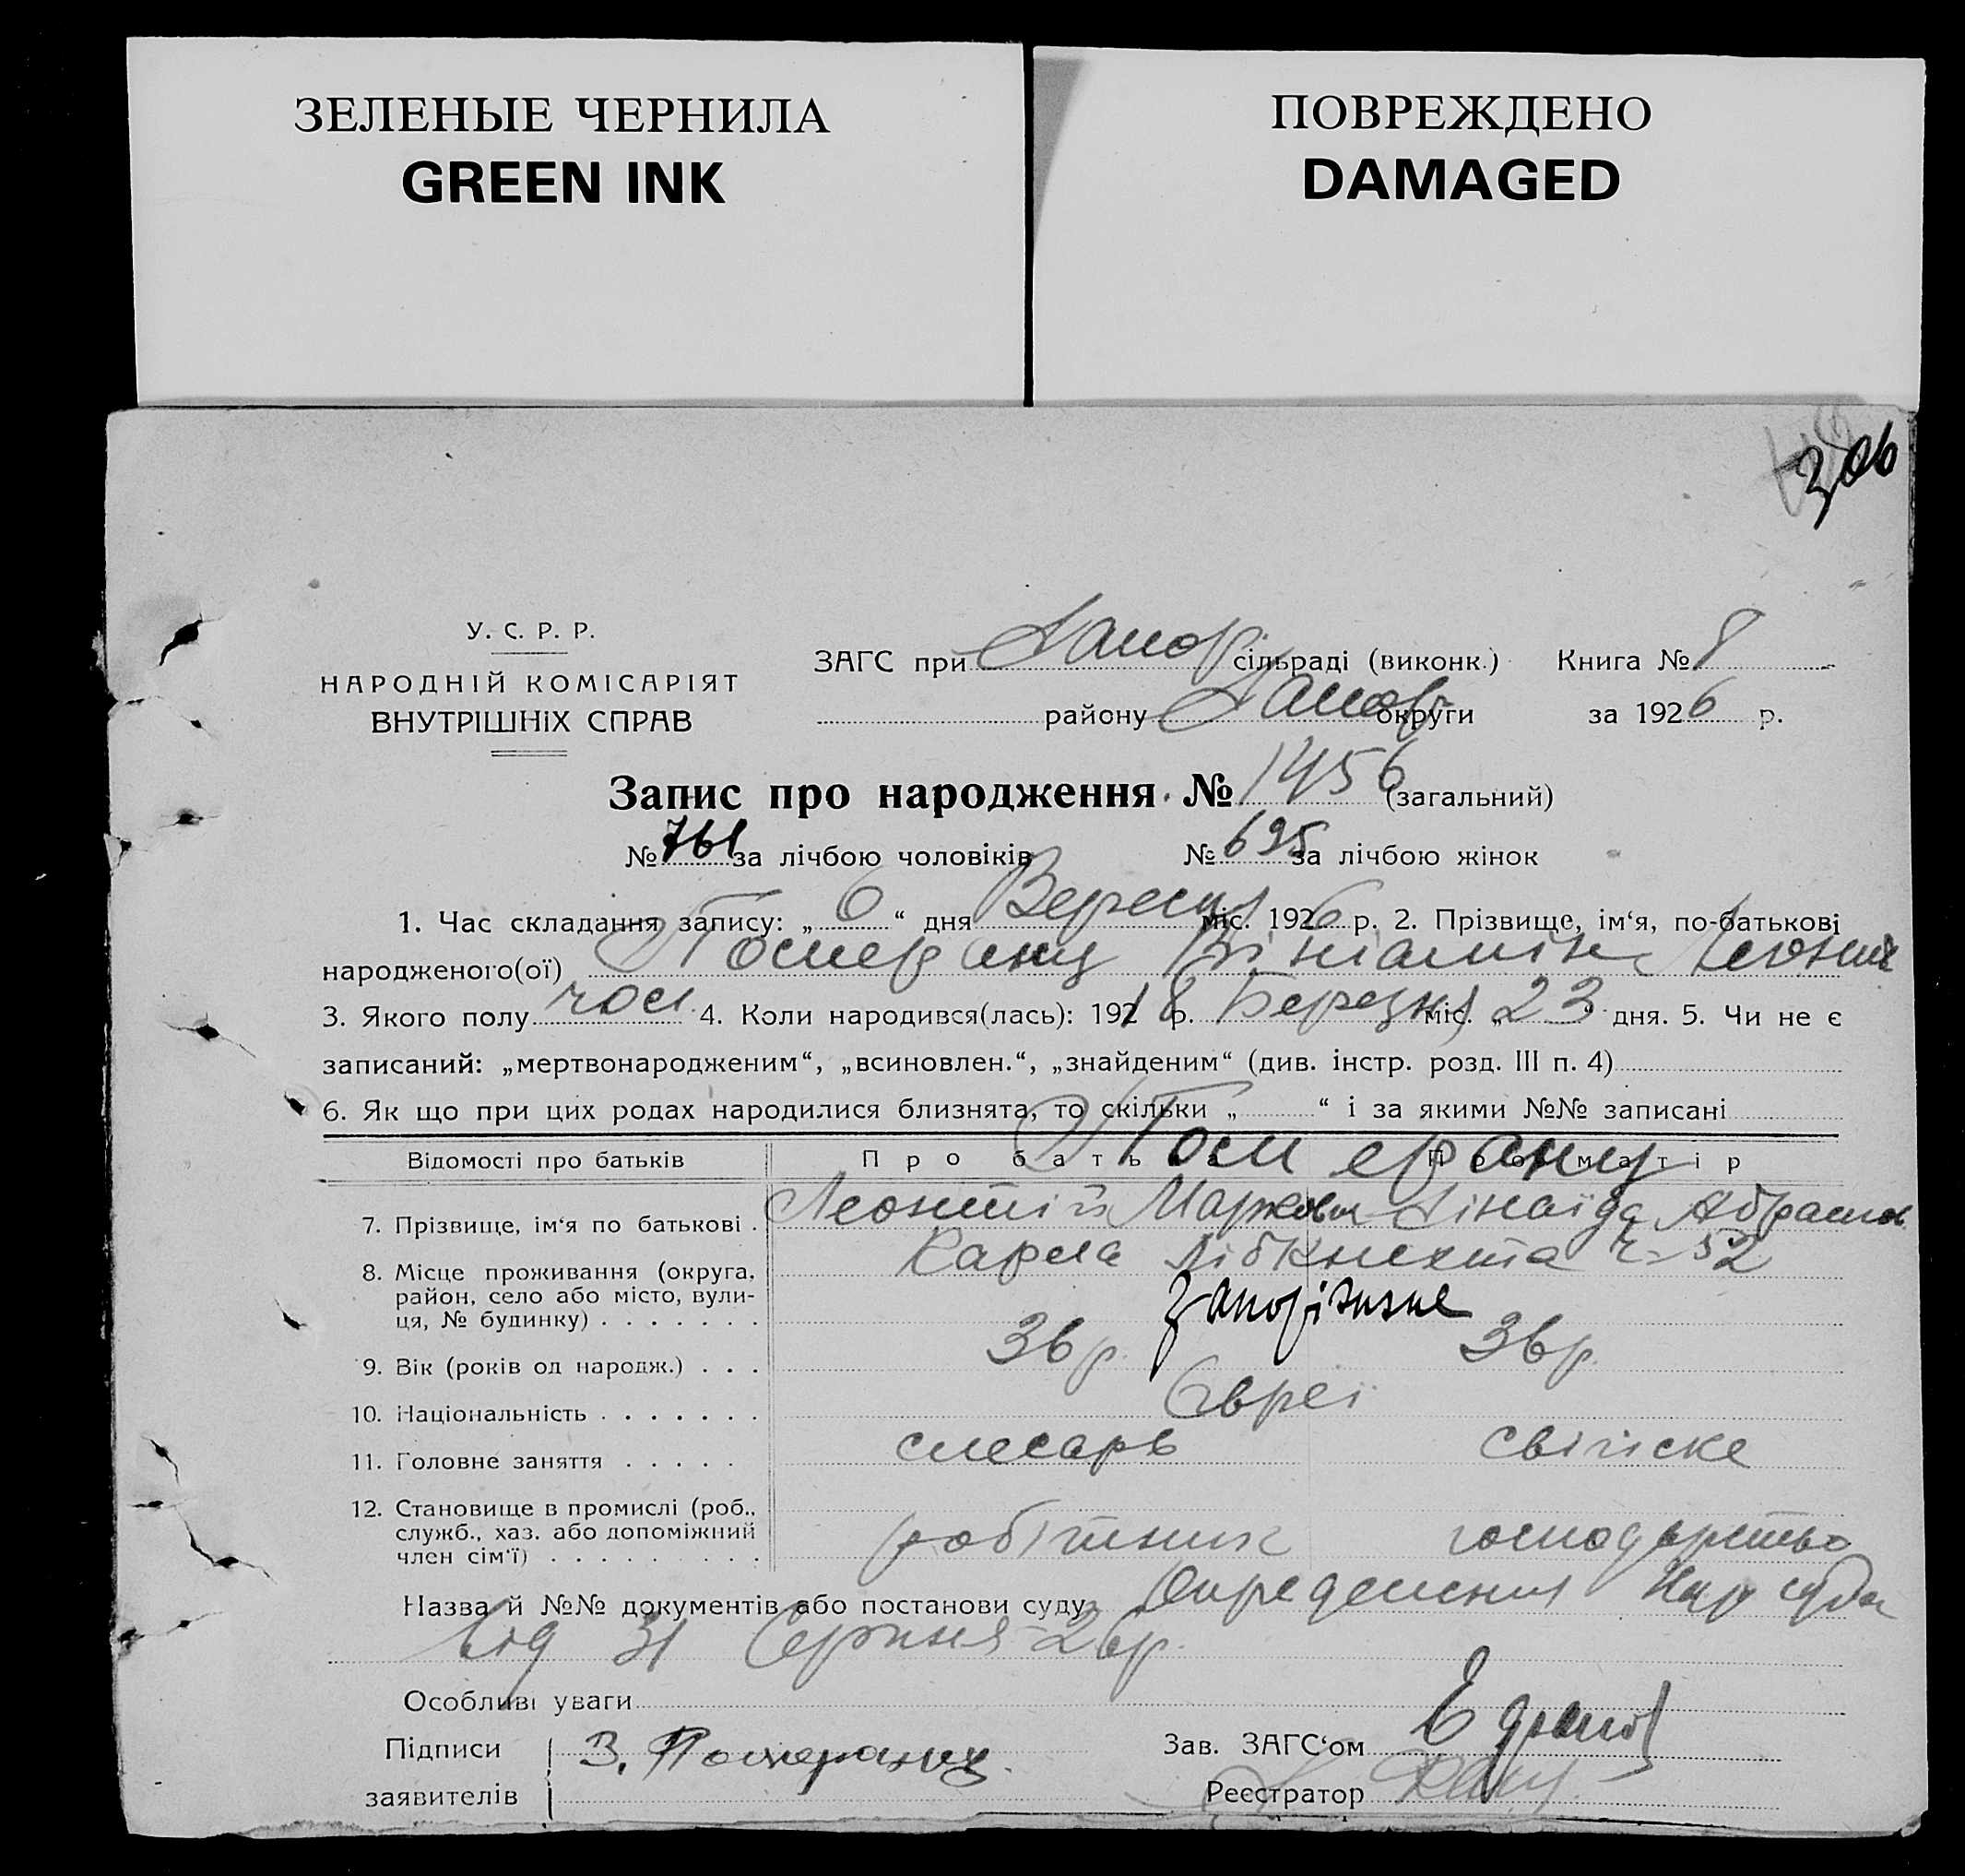 ЗЕЛЕНЫЕ ЧЕРНИЛА
GREEN INK
ПОВРЕЖДЕНО
DAMAGED
306
У. С. Р. Р.
НАРОДНІЙ КОМІСАРІЯТ
ВНУТРІШНІХ СПРАВ
ЗАГС при Запор сільраді (виконк.) Книга № 8
району Запор округи за 1926 р.
Запис про народження № 1456 (загальний)
№ 761 за лічбою чоловіків № 695 за лічбою жінок
1. Час складання запису: „ 6 “ дня Вересня міс. 1926 р. 2. Прізвище, ім‘я, по-батькові
народженого(ої) Померанц Вініамін Леонт
3. Якого полу чол. 4. Коли народився(лась): 1918 р. Березня міс. „ 23 “ дня. 5. Чи не є
записаний: „мертвонародженим“, „всиновлен.“, „знайденим“ (див. інстр. розд. III п. 4)
6. Як що при цих родах народилися близнята, то скільки „ “ і за якими №№ записані
Відомості про батьків Про батька Про матір
Померанц
7. Прізвище, ім‘я по батькові . Леонтій Маркович Зінаїда Абрамов
8. Місце проживання (округа, Карла Лібкнехта ч. 52
район, село або місто, вули-
ця, № будинку) . . . . . . . Запоріжже
9. Вік (років од народж.) . . . 36 р. 36 р.
10. Національність . . . . . . . Євреї
11. Головне заняття . . . . . слесарь свійске
12. Становище в промислі (роб.,
служб., хаз. або допоміжний
член сім‘ї) . . . . . . . . . робітник господарство
Назва й №№ документів або постанови суду Определения Нар суда
від 31 Серпня 26 р.
Особливі уваги
Підписи З. Померанц. Зав. ЗАГС‘ом
заявителів Реєстратор